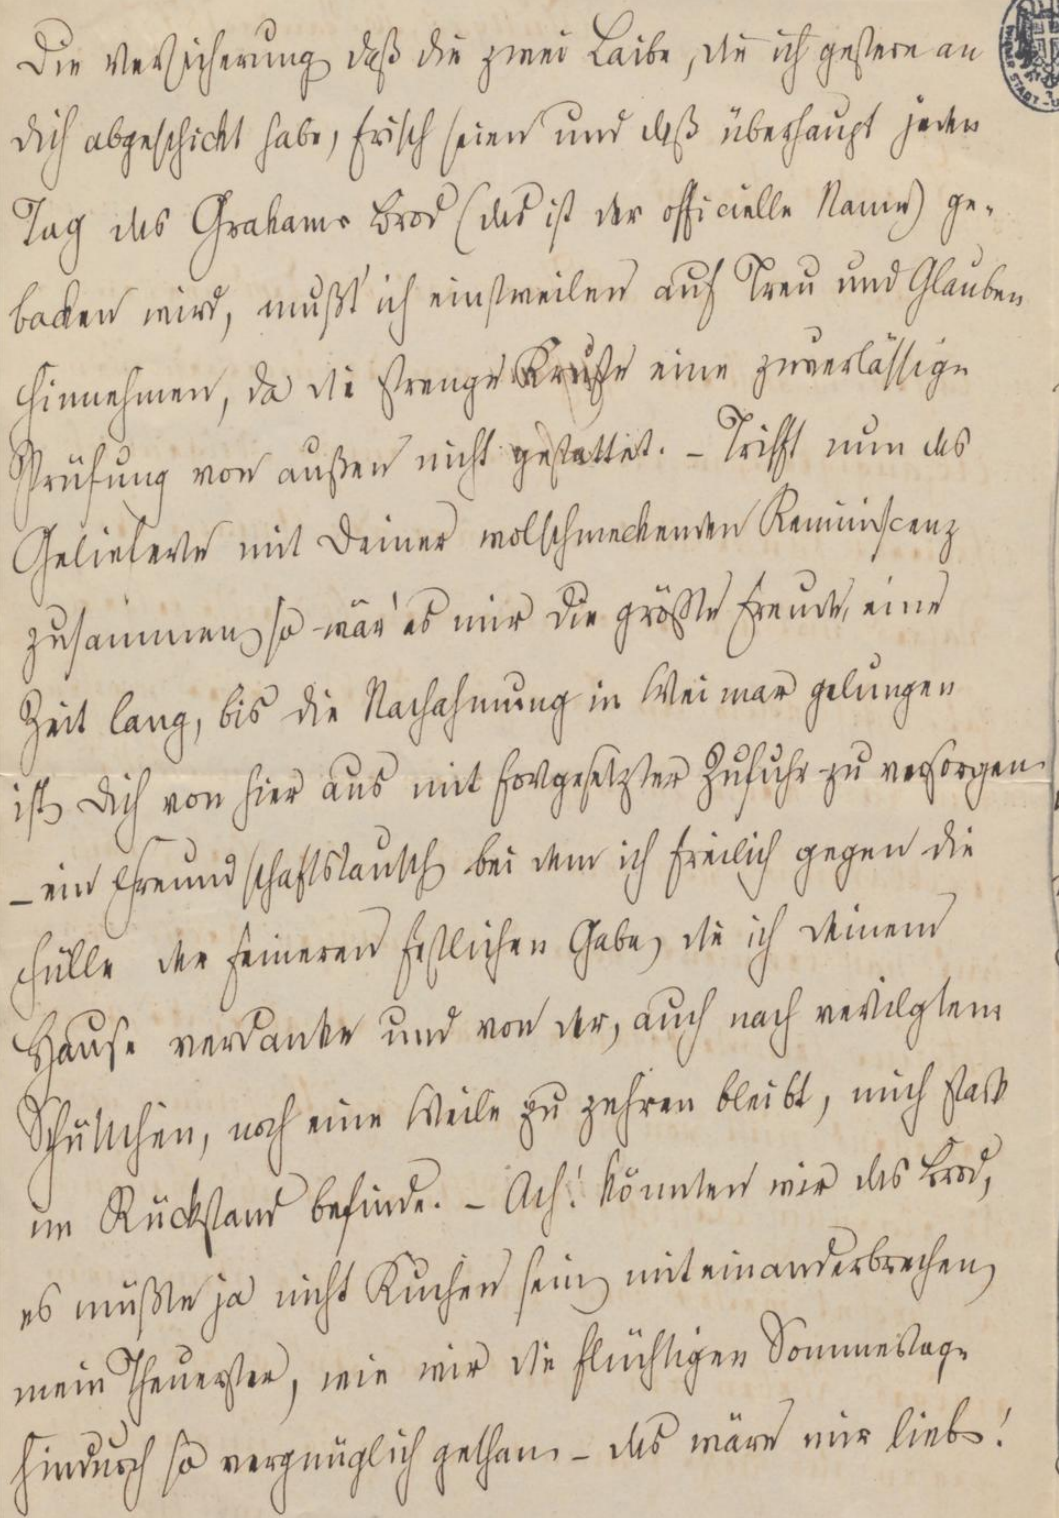 Die Versicherung daß die zwei Laibe, die ich gestern an
Dich abgeschickt habe, frisch seien und daß überhaupt jeden
Tag das Grahams Brod (das ist der officielle Name) ge-
backen wird, mußt' ich einstweilen auf Treu und Glauben
hinnehmen, da die strenge Kruste eine zuverlässige
Prüfung von außen nicht gestattet. – Trifft nun das
Gelieferte mit Deiner wolschmeckenden Reminiscenz
zusammen, so wär' es mir die größte Freude, eine
Zeit lang, bis die Nachahmung in Weimar gelungen
ist, Dich von hier aus mit fortgesetzter Zufuhr zu versorgen
– ein Freundschaftstausch bei dem ich freilich gegen die
Fülle der feineren festlichen Gabe, die ich Deinem
Hause verdanke und von der, auch nach vertilgtem
noch eine Weile zu zehren bleibt, mich stark
im Rückstand befinde. – Ach! könnten wir das Brod,
es müßte ja nicht Kuchen sein, miteinanderbrechen,
mein Theuerster, wie wir die flüchtigen Sommertage
hindurch so vergnüglich gethan – das wäre mir lieb!